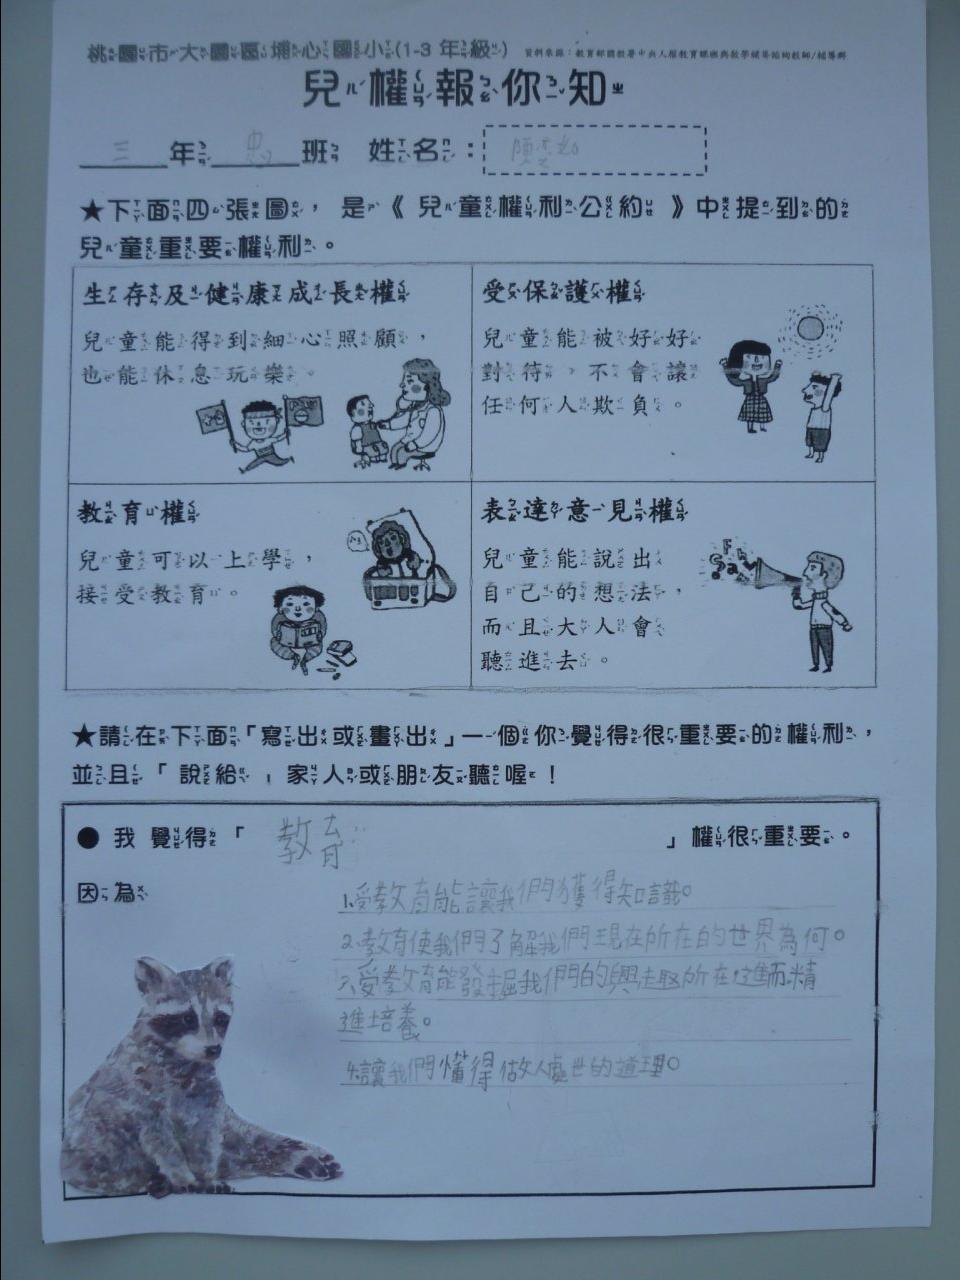 桃園市大園區埔心國小(1-3 年級)
資料來源：教育部國教署中央人權教育課程與教學輔導諮詢教師/輔導群
兒權報你知
三年忠班 姓名：陳
★下面四張圖，是《兒童權利公約》中提到的
兒童重要權利。
生存及健康成長權
兒童能得到細心照顧，
也能休息玩樂。
受保護權
兒童能被好好
對待，不會讓
任何人欺負。
教育權
兒童可以上學，
接受教育。
表達意見權
兒童能說出
自己的想法，
而且大人會
聽進去。
★請在下面「寫出或畫出」一個你覺得很重要的權利，
並且「說給」家人或朋友聽喔！
●我覺得「教育」權很重要。
因為
1.受教育能讓我們獲得知識。
2.教育使我們了解我們現在所在的世界為何。
3.受教育能發掘我們的興趣所在,進而精
進培養。
4.讓我們懂得做人處世的道理。